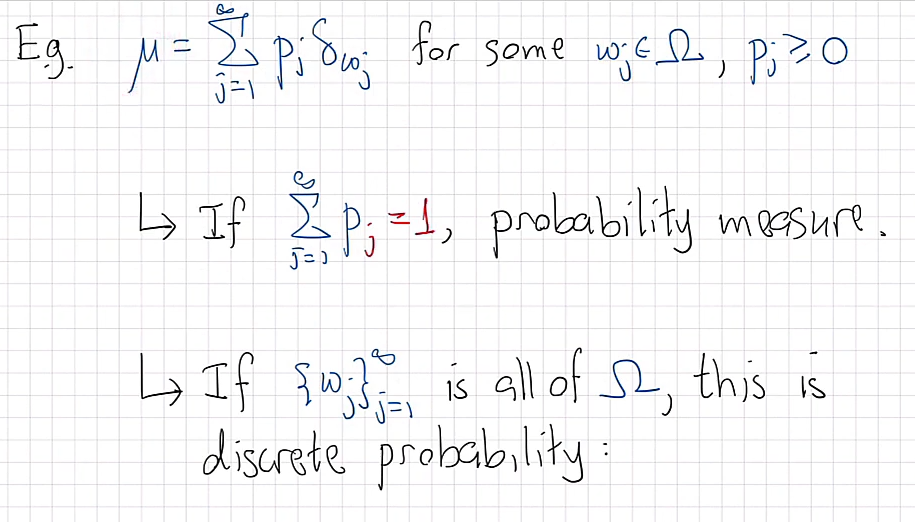 E.g. μ = ∑_{j=1}^{∞} p_j δ_{ω_j} for some ω_j ∈ Ω, p_j ≥ 0
↳ If ∑_{j=1}^{∞} p_j = 1, probability measure.
↳ If {ω_j}_{j=1}^{∞} is all of Ω, this is
discrete probability: